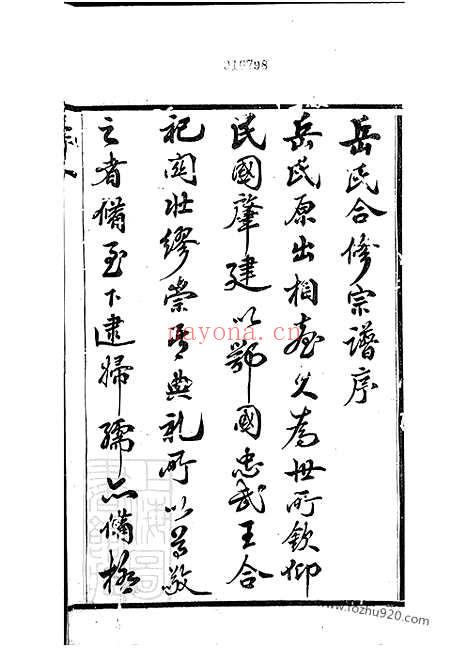 316798
岳氏合修宗譜序
岳氏原出相臺久為世所欽仰
民國肇建以鄂國忠武王合
祀關壯繆崇 典禮所以尊敬
之者備至下逮婦孺亦備極
nayona.cn
www.fozhu920.com